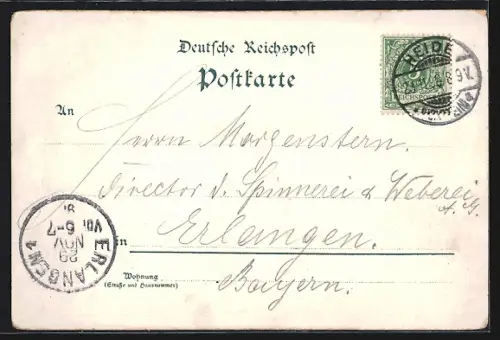 Deutsche Reichspost
Postkarte
HEIDE
REICHSPOST
An
Herrn Morgenstern.
Director d. Spinnerei & Weberei
A. G.
in Erlangen.
Wohnung
(Straße und Hausnummer)
Bayern.
ERLANGEN 1
29
NOV
6-7